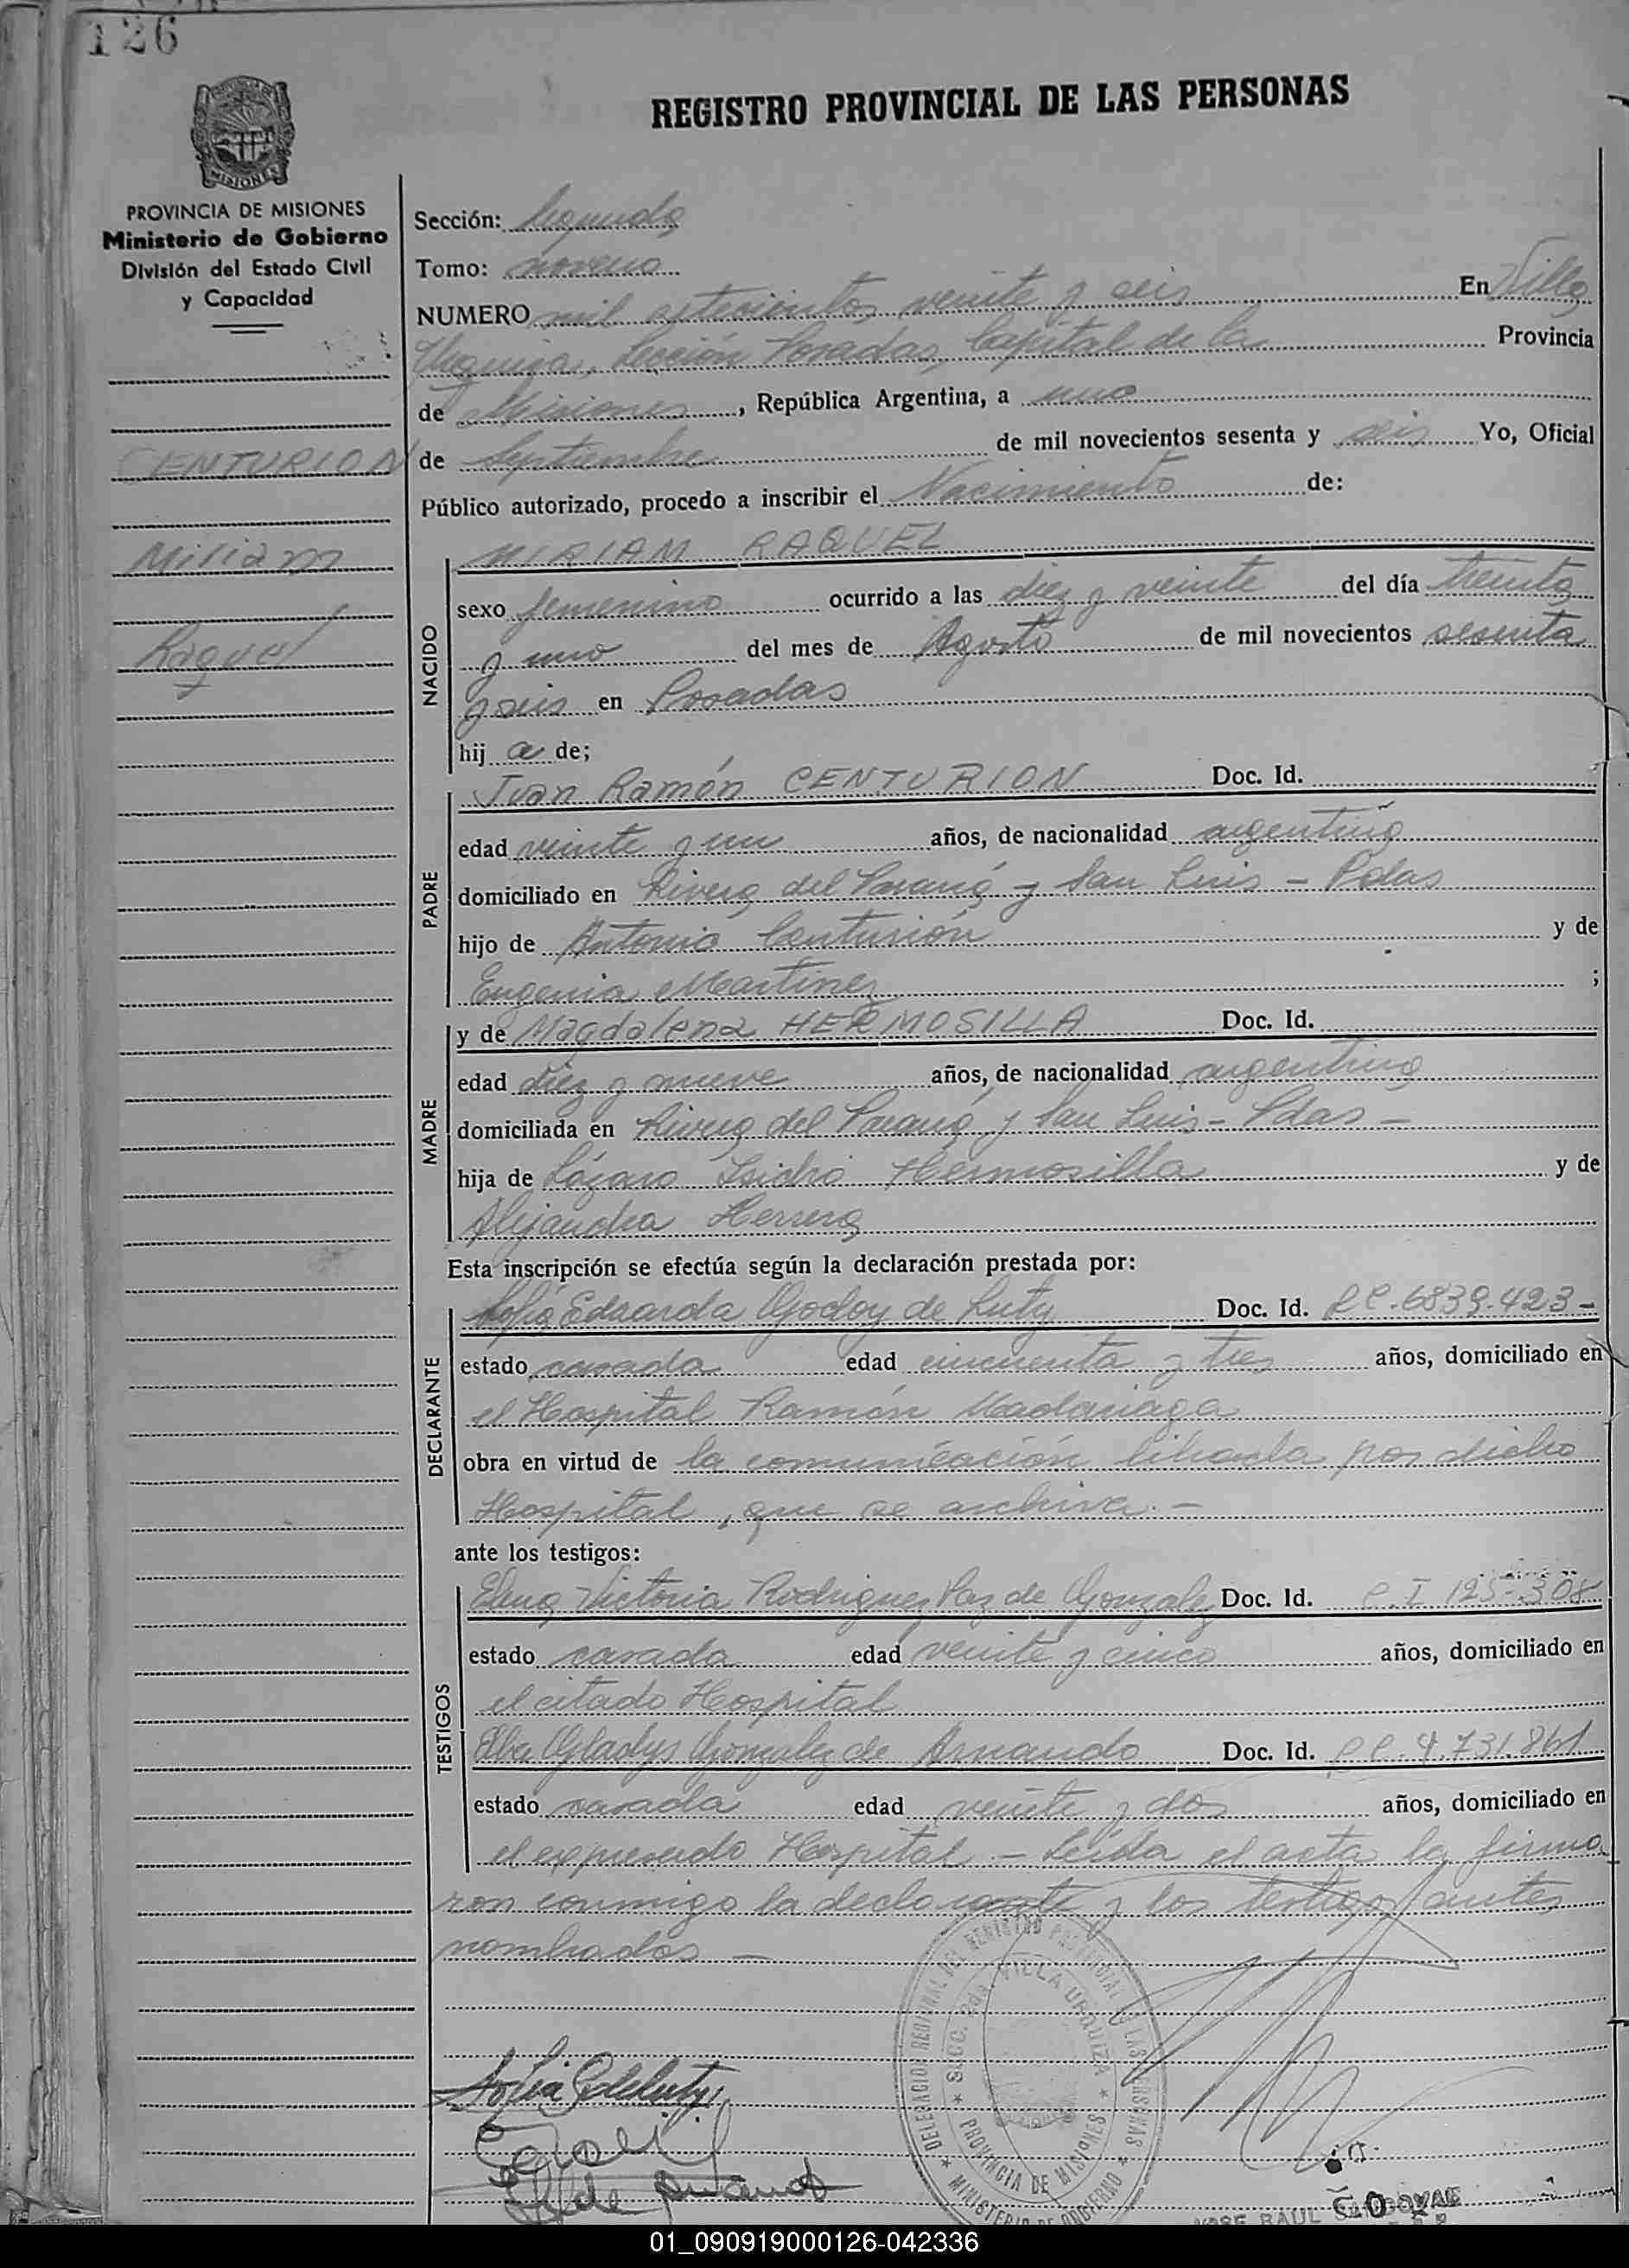 126
REGISTRO PROVINCIAL DE LAS PERSONAS
MISIONES
PROVINCIA DE MISIONES
Ministerio de Gobierno
División del Estado Civil
y Capacidad
CENTURION
Miriam
Raquel
Sección: Segunda
Tomo: noveno
NUMERO mil setecientos veinte y seis En Villa
Urquiza, Sección Posadas, Capital de la Provincia
de Misiones, República Argentina, a uno
de Septiembre de mil novecientos sesenta y seis Yo, Oficial
Público autorizado, procedo a inscribir el Nacimiento de:
NACIDO
MIRIAM RAQUEL
sexo femenino ocurrido a las diez y veinte del día treinta
y uno del mes de Agosto de mil novecientos sesenta
y seis en Posadas
hij a de;
PADRE
Juan Ramón CENTURION Doc. Id.
edad veinte y un años, de nacionalidad argentina
domiciliado en Rivera del Paraná y San Luis - Pdas
hijo de Antonio Centurión y de
Eugenia Martinez ;
MADRE
y de Magdalena HERMOSILLA Doc. Id.
edad diez y nueve años, de nacionalidad argentina
domiciliada en Rivera del Paraná y San Luis - Pdas -
hija de Lázaro Isidro Hermosilla y de
Alejandra Herrera
Esta inscripción se efectúa según la declaración prestada por:
DECLARANTE
Sofía Eduarda Godoy de Luty Doc. Id. L C. 6839.423 -
estado casada edad cincuenta y tres años, domiciliado en
el Hospital Ramón Madariaga
obra en virtud de la comunicación librada por dicho
Hospital, que se archiva. -
ante los testigos:
TESTIGOS
Elena Victoria Rodriguez Paz de Gonzalez Doc. Id. C. I 125-308
estado casada edad veinte y cinco años, domiciliado en
el citado Hospital
Elba Gladys Gonzalez de Arnaudo Doc. Id. L C. 4.731.861
estado casada edad veinte y dos años, domiciliado en
el expresado Hospital - Leída el acta la firma
ron conmigo la declarante y los testigos antes
nombrados -
DELEGACIO REGIONAL DEL REGISTRO PROVINCIAL DE LAS PERSONAS
SECC. Pdas. VILLA URQUIZA
PROVINCIA DE MISIONES
MINISTERIO DE GOBIERNO
Sofia G de Luty
de Arnaudo
JOSE RAUL SANDOVAL
01_090919000126-042336